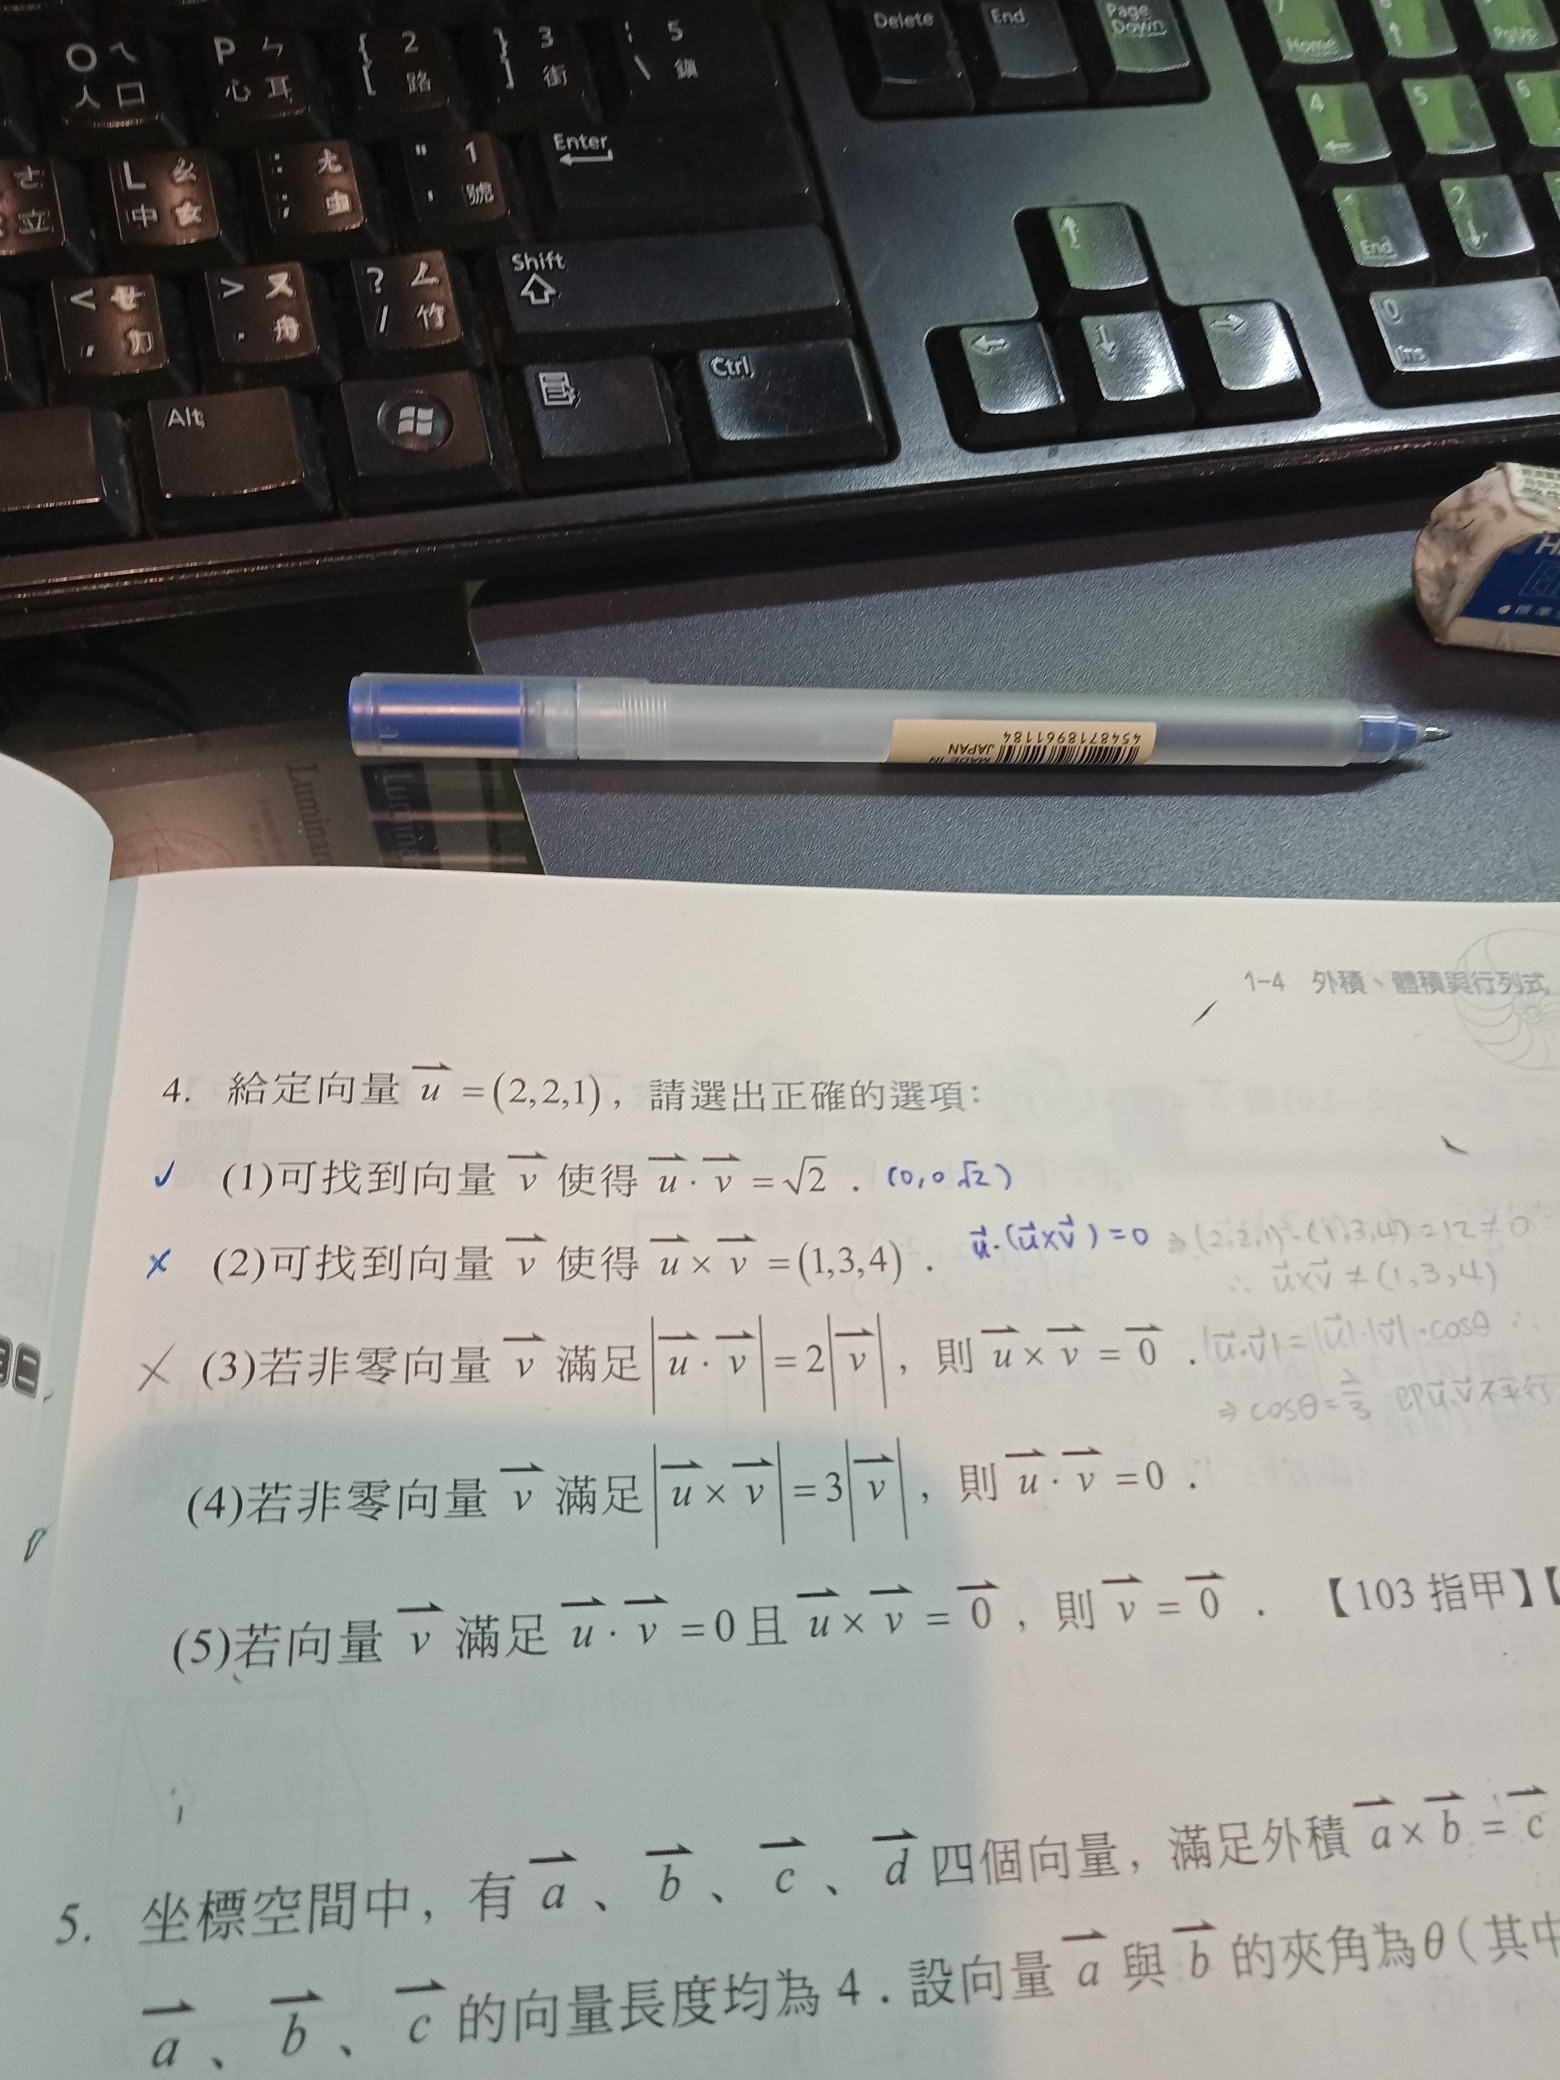 O ㄟ P ㄣ { 2 } 3 | 5 Delete End Page Down 7 Home 8 9 PgUp
人 口 心 耳 [ 路 ] 街 \ 鎮 4 5 6
L ㄠ : ㄤ " 1 Enter
立 中 女 ; 虫 ' 號 1 End 2
< ㄝ > ㄡ ? ㄥ Shift
, 力 . 舟 / 竹 0 Ins
Alt Ctrl
4548718961184
MADE IN JAPAN
1-4 外積、體積與行列式
4. 給定向量 u⃗ =(2,2,1), 請選出正確的選項:
✓ (1)可找到向量 v⃗ 使得 u⃗ · v⃗ =√2 . (0,0 √2)
✗ (2)可找到向量 v⃗ 使得 u⃗ × v⃗ =(1,3,4) . u⃗·(u⃗×v⃗)=0 ⇒(2,2,1)·(1,3,4)=12≠0
∴ u⃗×v⃗ ≠(1,3,4)
✗ (3)若非零向量 v⃗ 滿足 |u⃗ · v⃗|=2|v⃗|, 則 u⃗ × v⃗ = 0⃗ . |u⃗·v⃗|=|u⃗|·|v⃗|·cosθ ∴
⇒ cosθ=2/3 即u⃗,v⃗不平行
(4)若非零向量 v⃗ 滿足 |u⃗ × v⃗|=3|v⃗|, 則 u⃗ · v⃗ =0 .
(5)若向量 v⃗ 滿足 u⃗ · v⃗ =0且 u⃗ × v⃗ = 0⃗, 則 v⃗ = 0⃗ . 【103 指甲】【
5. 坐標空間中, 有 a⃗、b⃗、c⃗、d⃗ 四個向量, 滿足外積 a⃗×b⃗ = c⃗
a⃗、b⃗、c⃗ 的向量長度均為 4 . 設向量 a⃗ 與 b⃗ 的夾角為θ ( 其中